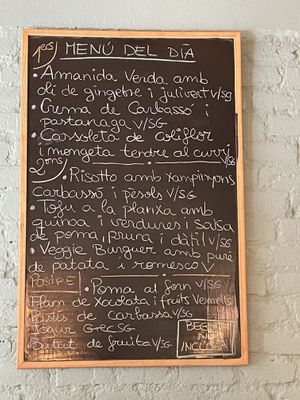 1ers) MENÚ DEL DIA
• Amanida Verda amb
oli de gingebre i julivert V/SG
• Crema de Carbassó i
pastanaga V/SG
• Cassoleta de coliflor
i mongeta tendre al curri V/SG
2ons) • Risotto amb xampinyons
Carbassó i pèsols V/SG
• Tofu a la planxa amb
quinoa i verdures i salsa
de poma, pruna i dàtil V/SG
• Veggie Burguer amb puré
de patata i romesco V
POSTRES • Poma al forn V/SG
Flam de Xocolata i fruits Vermells
Pastís de Carbassa V/SG
Iogur Grec SG
Batut de fruita V/SG
BEGUDA
NO
INCLOSA